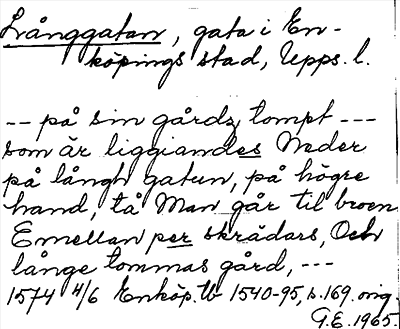 Långgatan, gata i En-
köpings stad, Upps. l.
-- på sin gårdz tompt ---
som är liggiandes Neder
på långh gatun, på högre
hand, tå Man går til broen
Emellan per skrädars, Och
långe tommas gård, ---
1574 4/6 Enköp. tb 1540-95, s. 169. orig.
G.E. 1965.